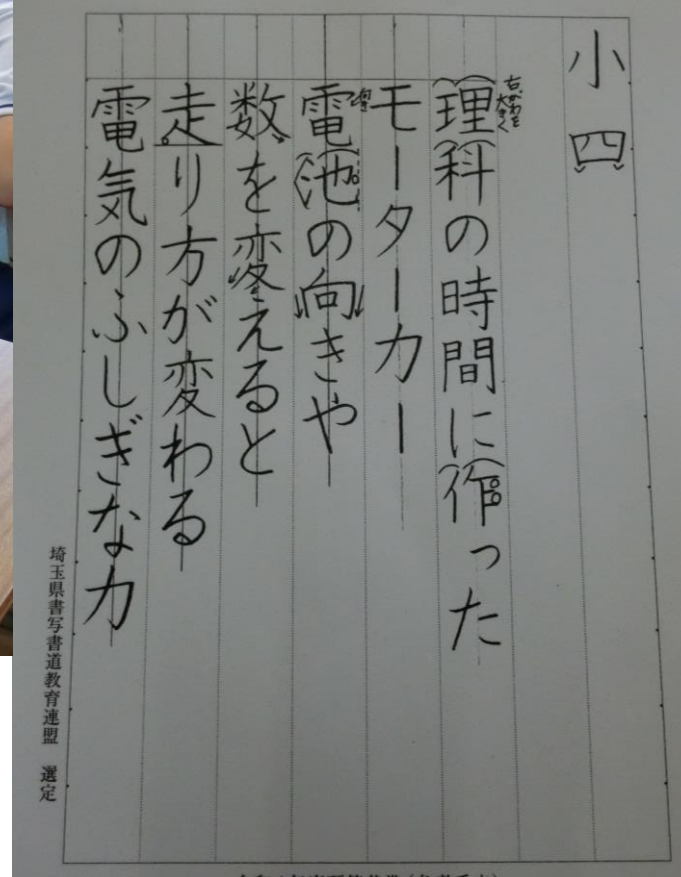 小四
右がわを
大きく
理科の時間に作った
モーターカー
電池の向きや
数を変えると
走り方が変わる
電気のふしぎな力
埼玉県書写書道教育連盟 選定